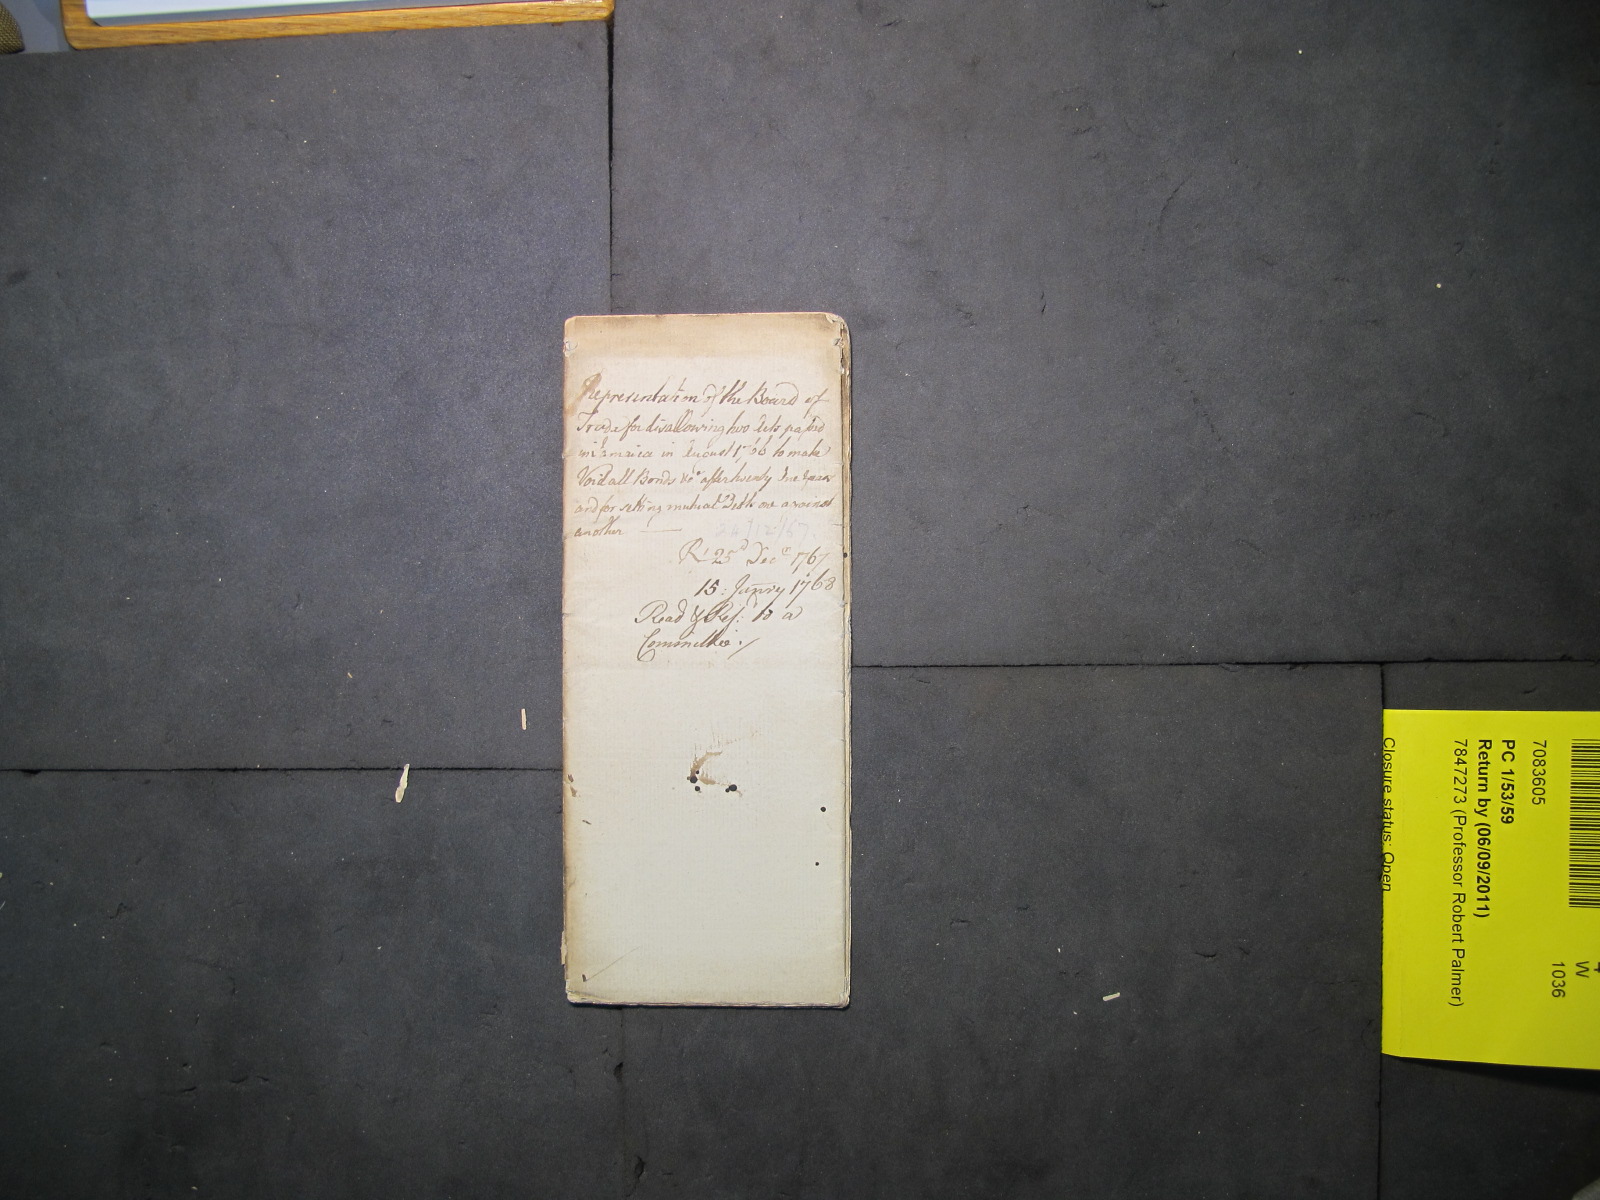 Representation of the Board of
Trade for disallowing two Acts passed
in Jamaica in August 1766 to make
Void all Bonds &c.ª after twenty One Years
and for setting mutual Debts one against
another
24/12/67.
R.ᵈ 23ᵈ Decʳ 1767
15: Janry 1768
Read & Ref: to a
Committee:/
7083605
PC 1/53/59
Return by (06/09/2011)
7847273 (Professor Robert Palmer)
Closure status: Open
W
1036